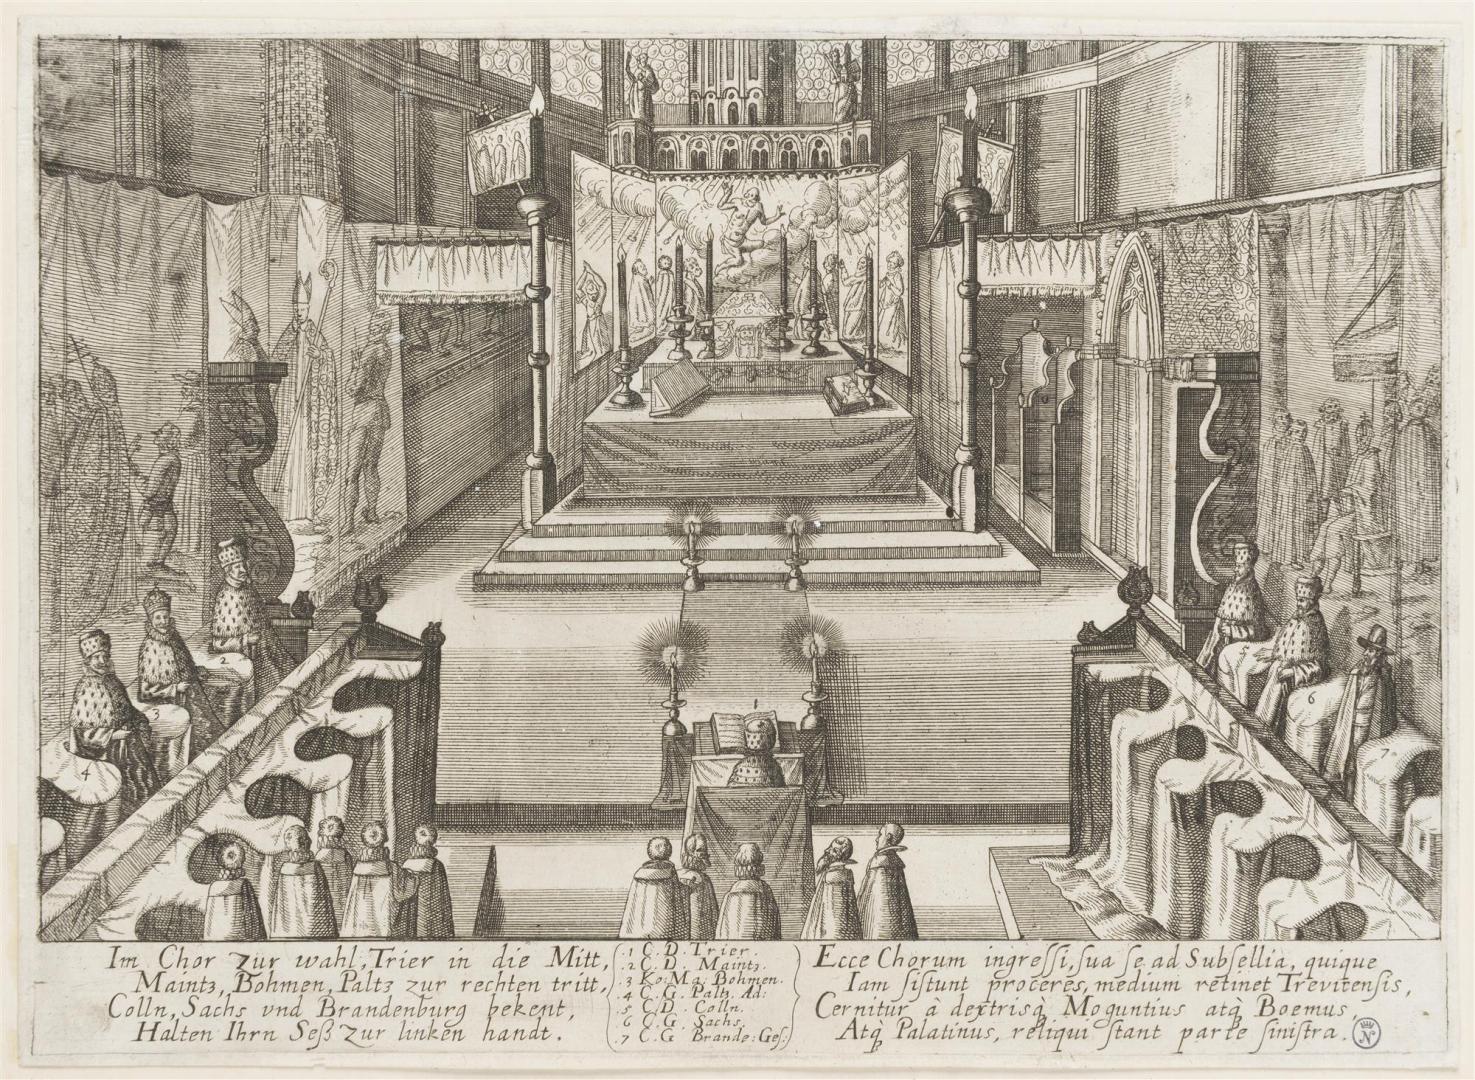 Im Chor zur wahl, Trier in die Mitt,
Maintz, Bohmen, Paltz zur rechten tritt,
Colln, Sachs vnd Brandenburg bekent,
Halten Ihrn Seß zur linken handt.
.1 C. D. Trier.
.2 C. D. Maintz.
.3 Ko: Ma: Bohmen.
.4 C. G. Paltz. Ad:
.5 C. D. Colln.
6 C. G. Sachs.
.7 C. G Brande: Ges:
Ecce Chorum ingreſſi, sua se ad Subſellia, quique
Iam ſiſtunt proceres, medium retinet Trevirensis,
Cernitur à dextrisq̀ Moguntius atq̀ Boemus,
Atq̀ Palatinus, reliqui ſtant parte ſiniſtra.
N
1
2
3
4
5
6
7